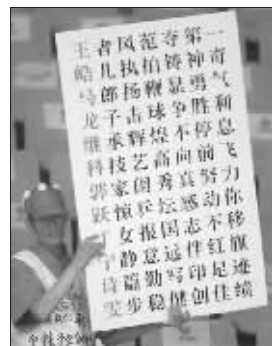 王者风范夺第一
皓儿执拍铸神奇
马郎扬鞭显勇气
龙子击球争胜利
继承辉煌不停息
科技艺高向前飞
郭家闺秀真努力
跃惊乒坛感动你
丁女报国志不移
宁静意远伴红旗
诗篇勤写印足迹
雯步稳健创佳绩